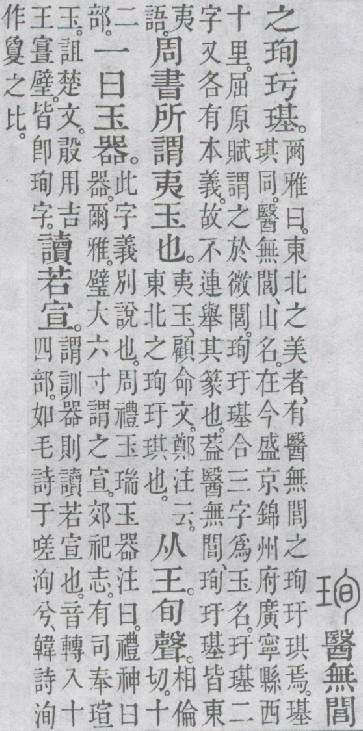 珣醫無閭
之珣玗璂。爾雅曰。東北之美者、有醫無閭之珣玗琪焉。璂琪同。醫無閭、山名。在今盛京錦州府廣寧縣西
十里。屈原賦謂之於微閭。珣玗璂合三字爲玉名。玗璂二字又各有本義。故不連舉其篆也。葢醫無閭、珣玗璂皆東
夷語。周書所謂夷玉也。夷玉、顧命文。鄭注云。東北之珣玗琪也。从王。旬聲。相倫切。十
二部。一曰玉器。此字義別說也。周禮玉瑞玉器注曰。禮神曰器。爾雅。璧大六寸謂之宣。郊祀志。有司奉瑄
玉。詛楚文。敢用吉王亶璧。皆卽珣字。讀若宣。謂訓器則讀若宣也。音轉入十四部。如毛詩于嗟洵兮、韓詩洵
作夐之比。